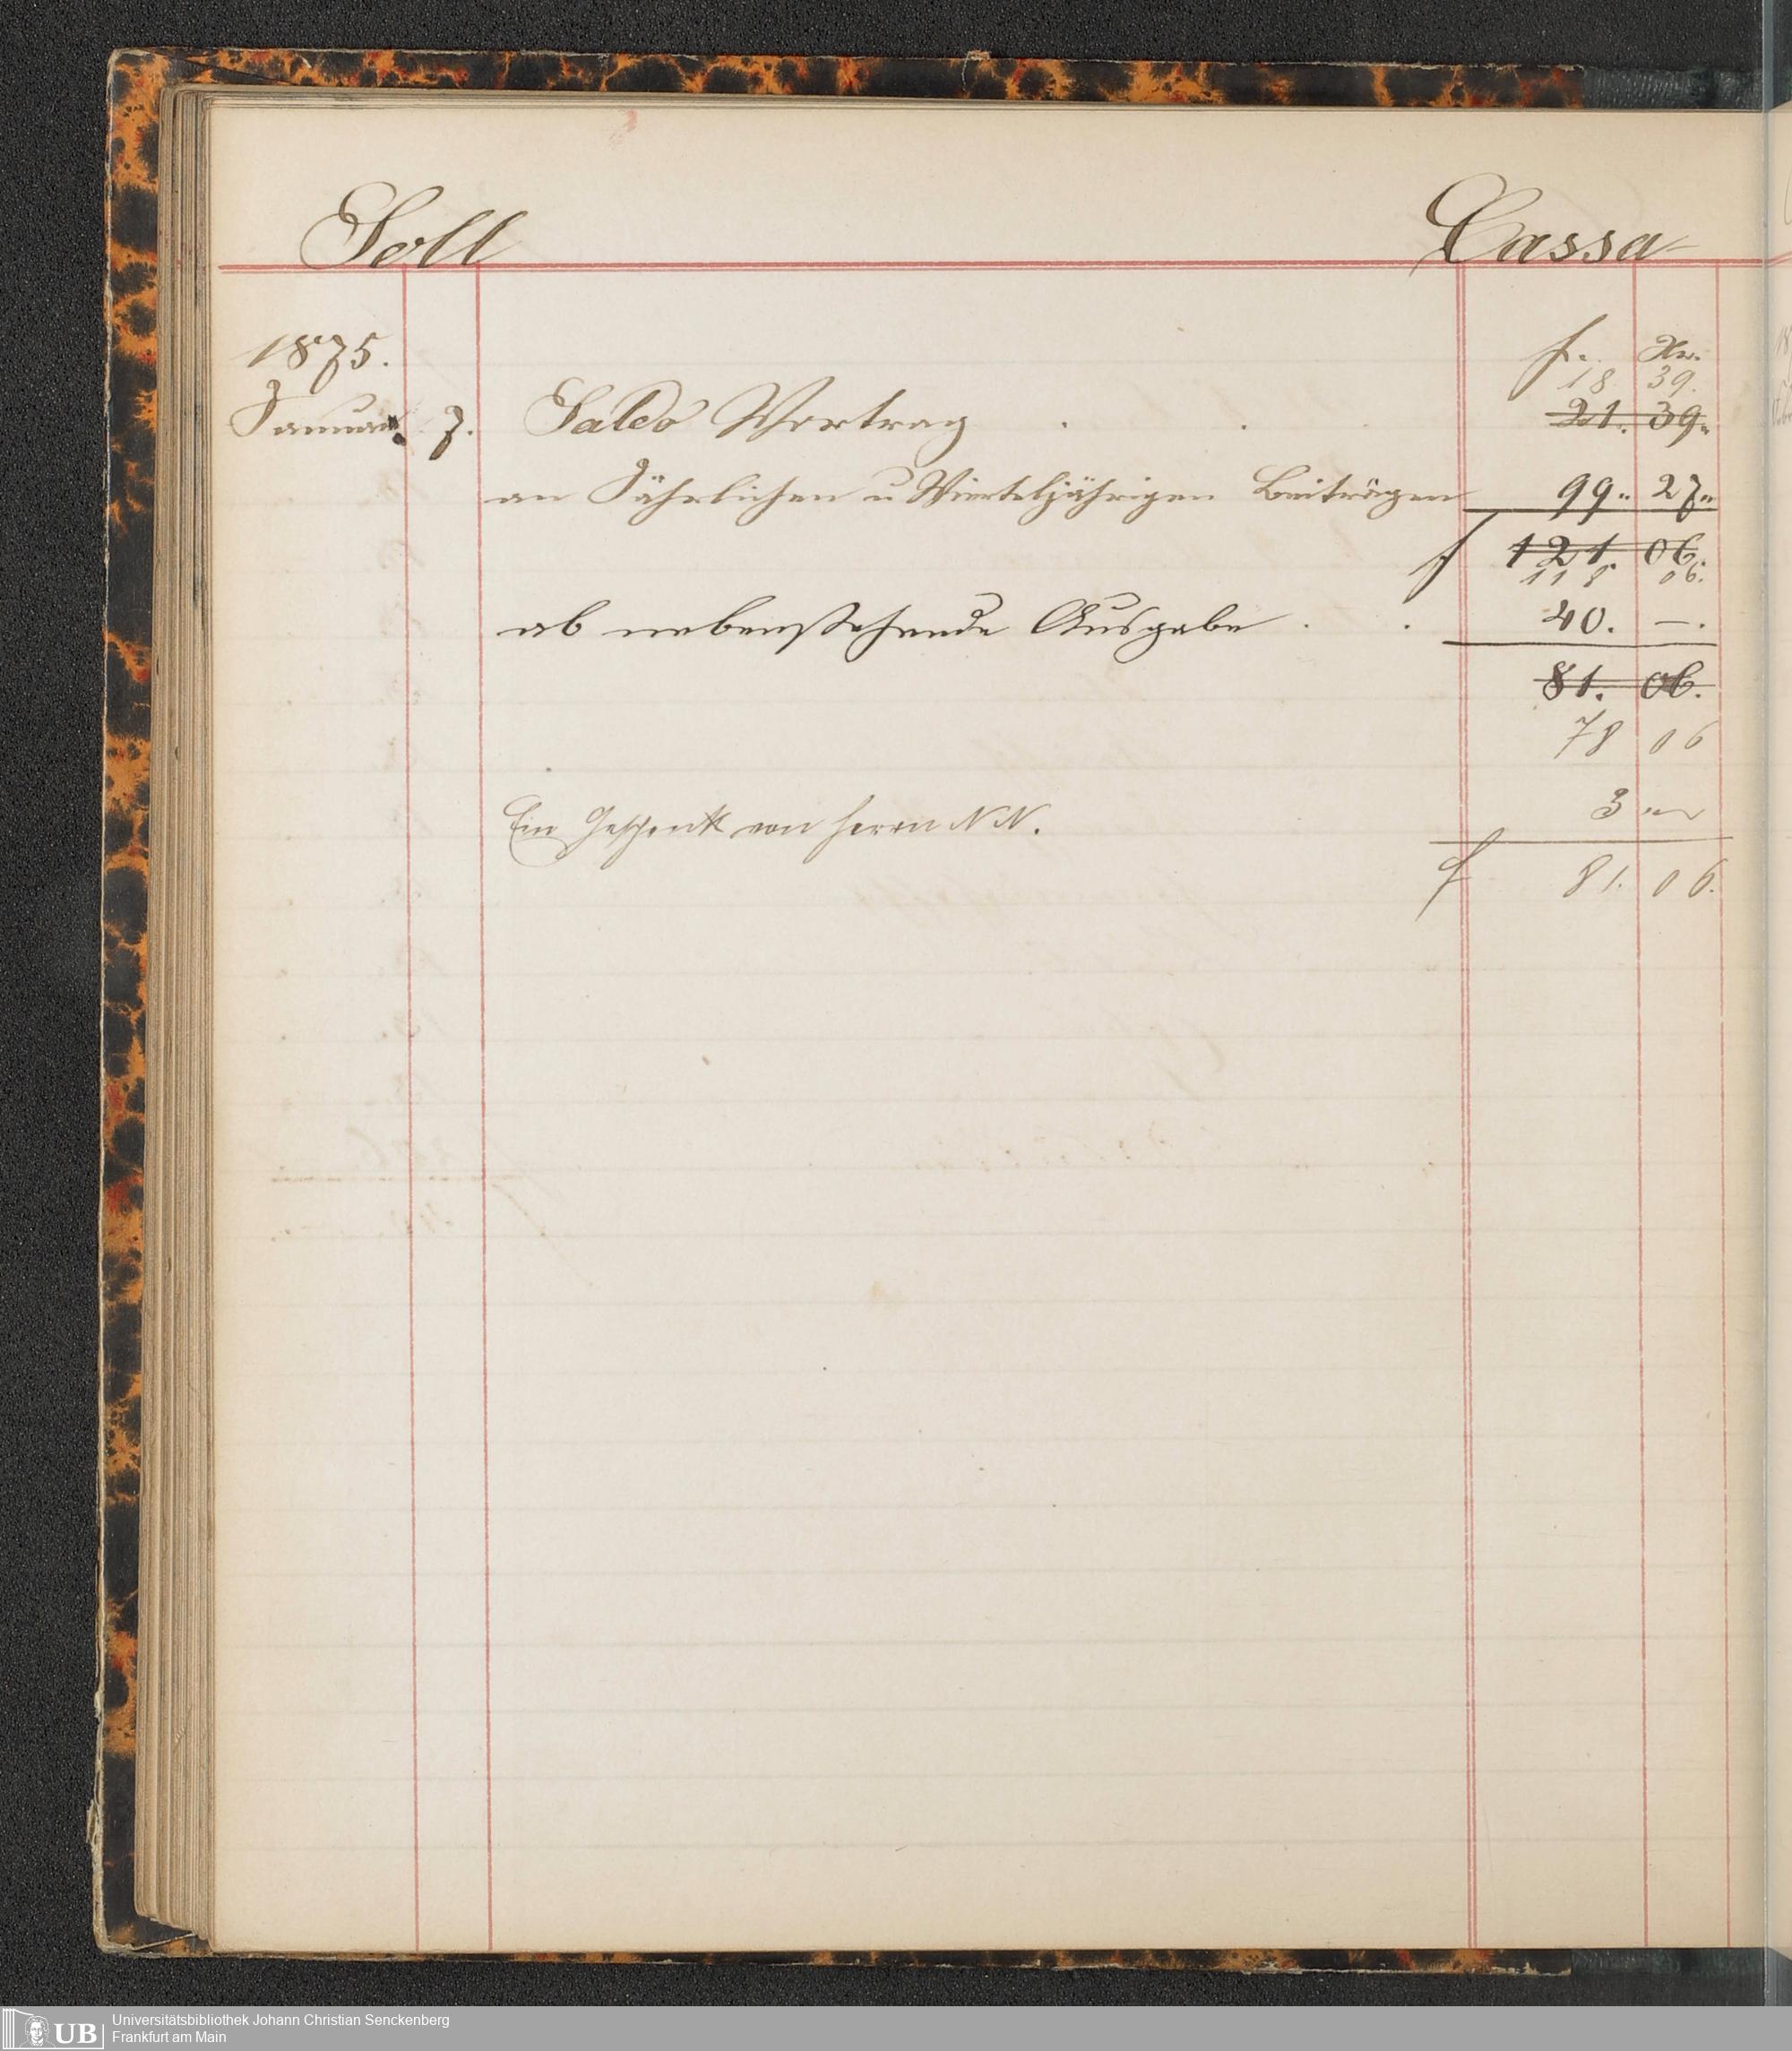 Soll Cassa
1875. f. Xr.
18 39.
Januar 7. Saldo Vortrag . . 21. 39.
an Jährlichen u Vierteljährigen Beiträgen 99.. 27..
f 121. 06.
118 06.
ab nebenstehende Ausgabe . . 40. —.
81. 06.
78 06
Ein Geschenk von Herrn N N. 3 "
f 81. 06.
UB Universitätsbibliothek Johann Christian Senckenberg
Frankfurt am Main